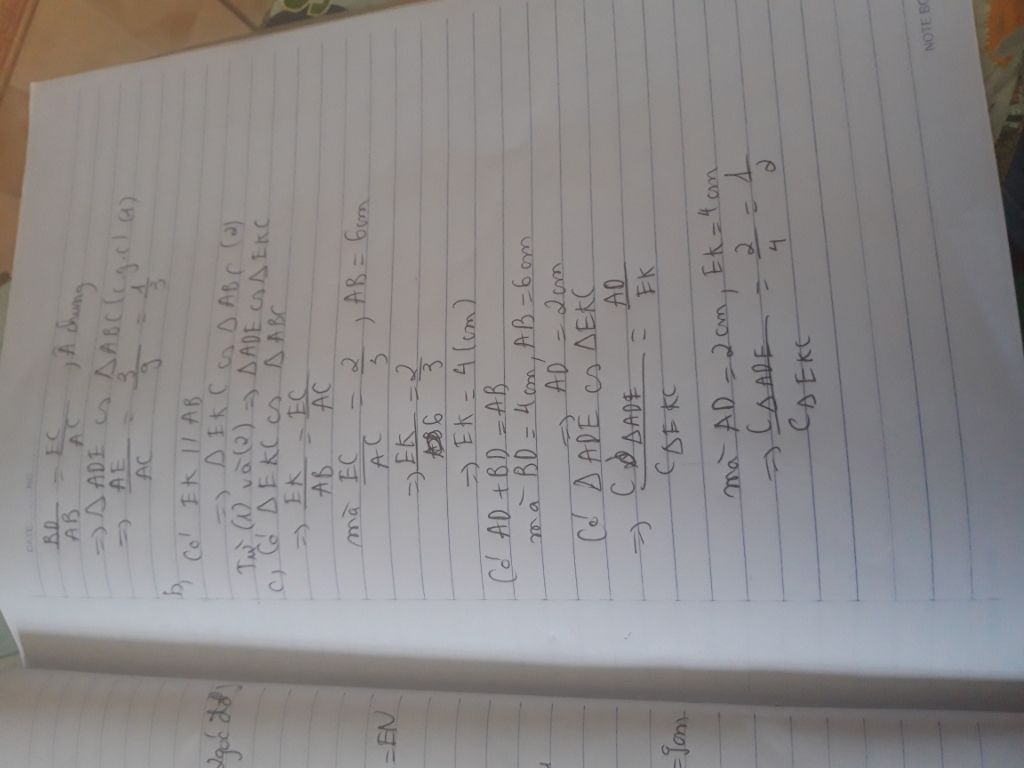 DATE NO.
BD/AB = EC/AC , A chung
=> ΔADE ∽ ΔABC (c.g.c) (1)
=> AE/AC = 3/9 = 1/3
b, Có EK // AB
=> ΔEKC ∽ ΔABC (2)
Từ (1) và (2) => ΔADE ∽ ΔEKC
c) Có ΔEKC ∽ ΔABC
=> EK/AB = EC/AC
mà EC/AC = 2/3 , AB = 6cm
=> EK/6 = 2/3
=> EK = 4 (cm)
Có AD + BD = AB
mà BD = 4cm, AB = 6cm
=> AD = 2cm
Có ΔADE ∽ ΔEKC
=> CΔADE/CΔEKC = AD/EK
mà AD = 2cm, EK = 4cm
=> CΔADE/CΔEKC = 2/4 = 1/2
=EN
=9cm
NOTE BO